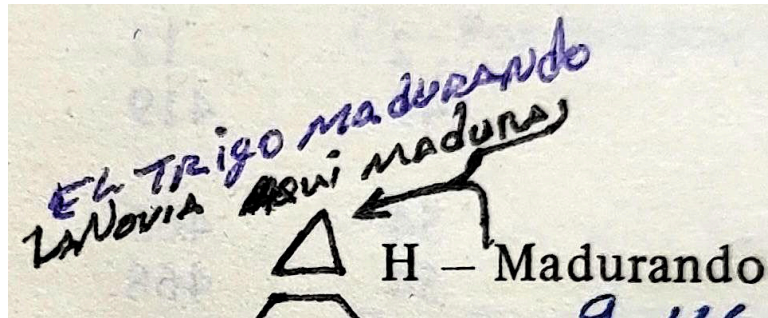 EL TRIGO MAdURANdo
LA NOVIA AQUI MAdURA
H – Madurando